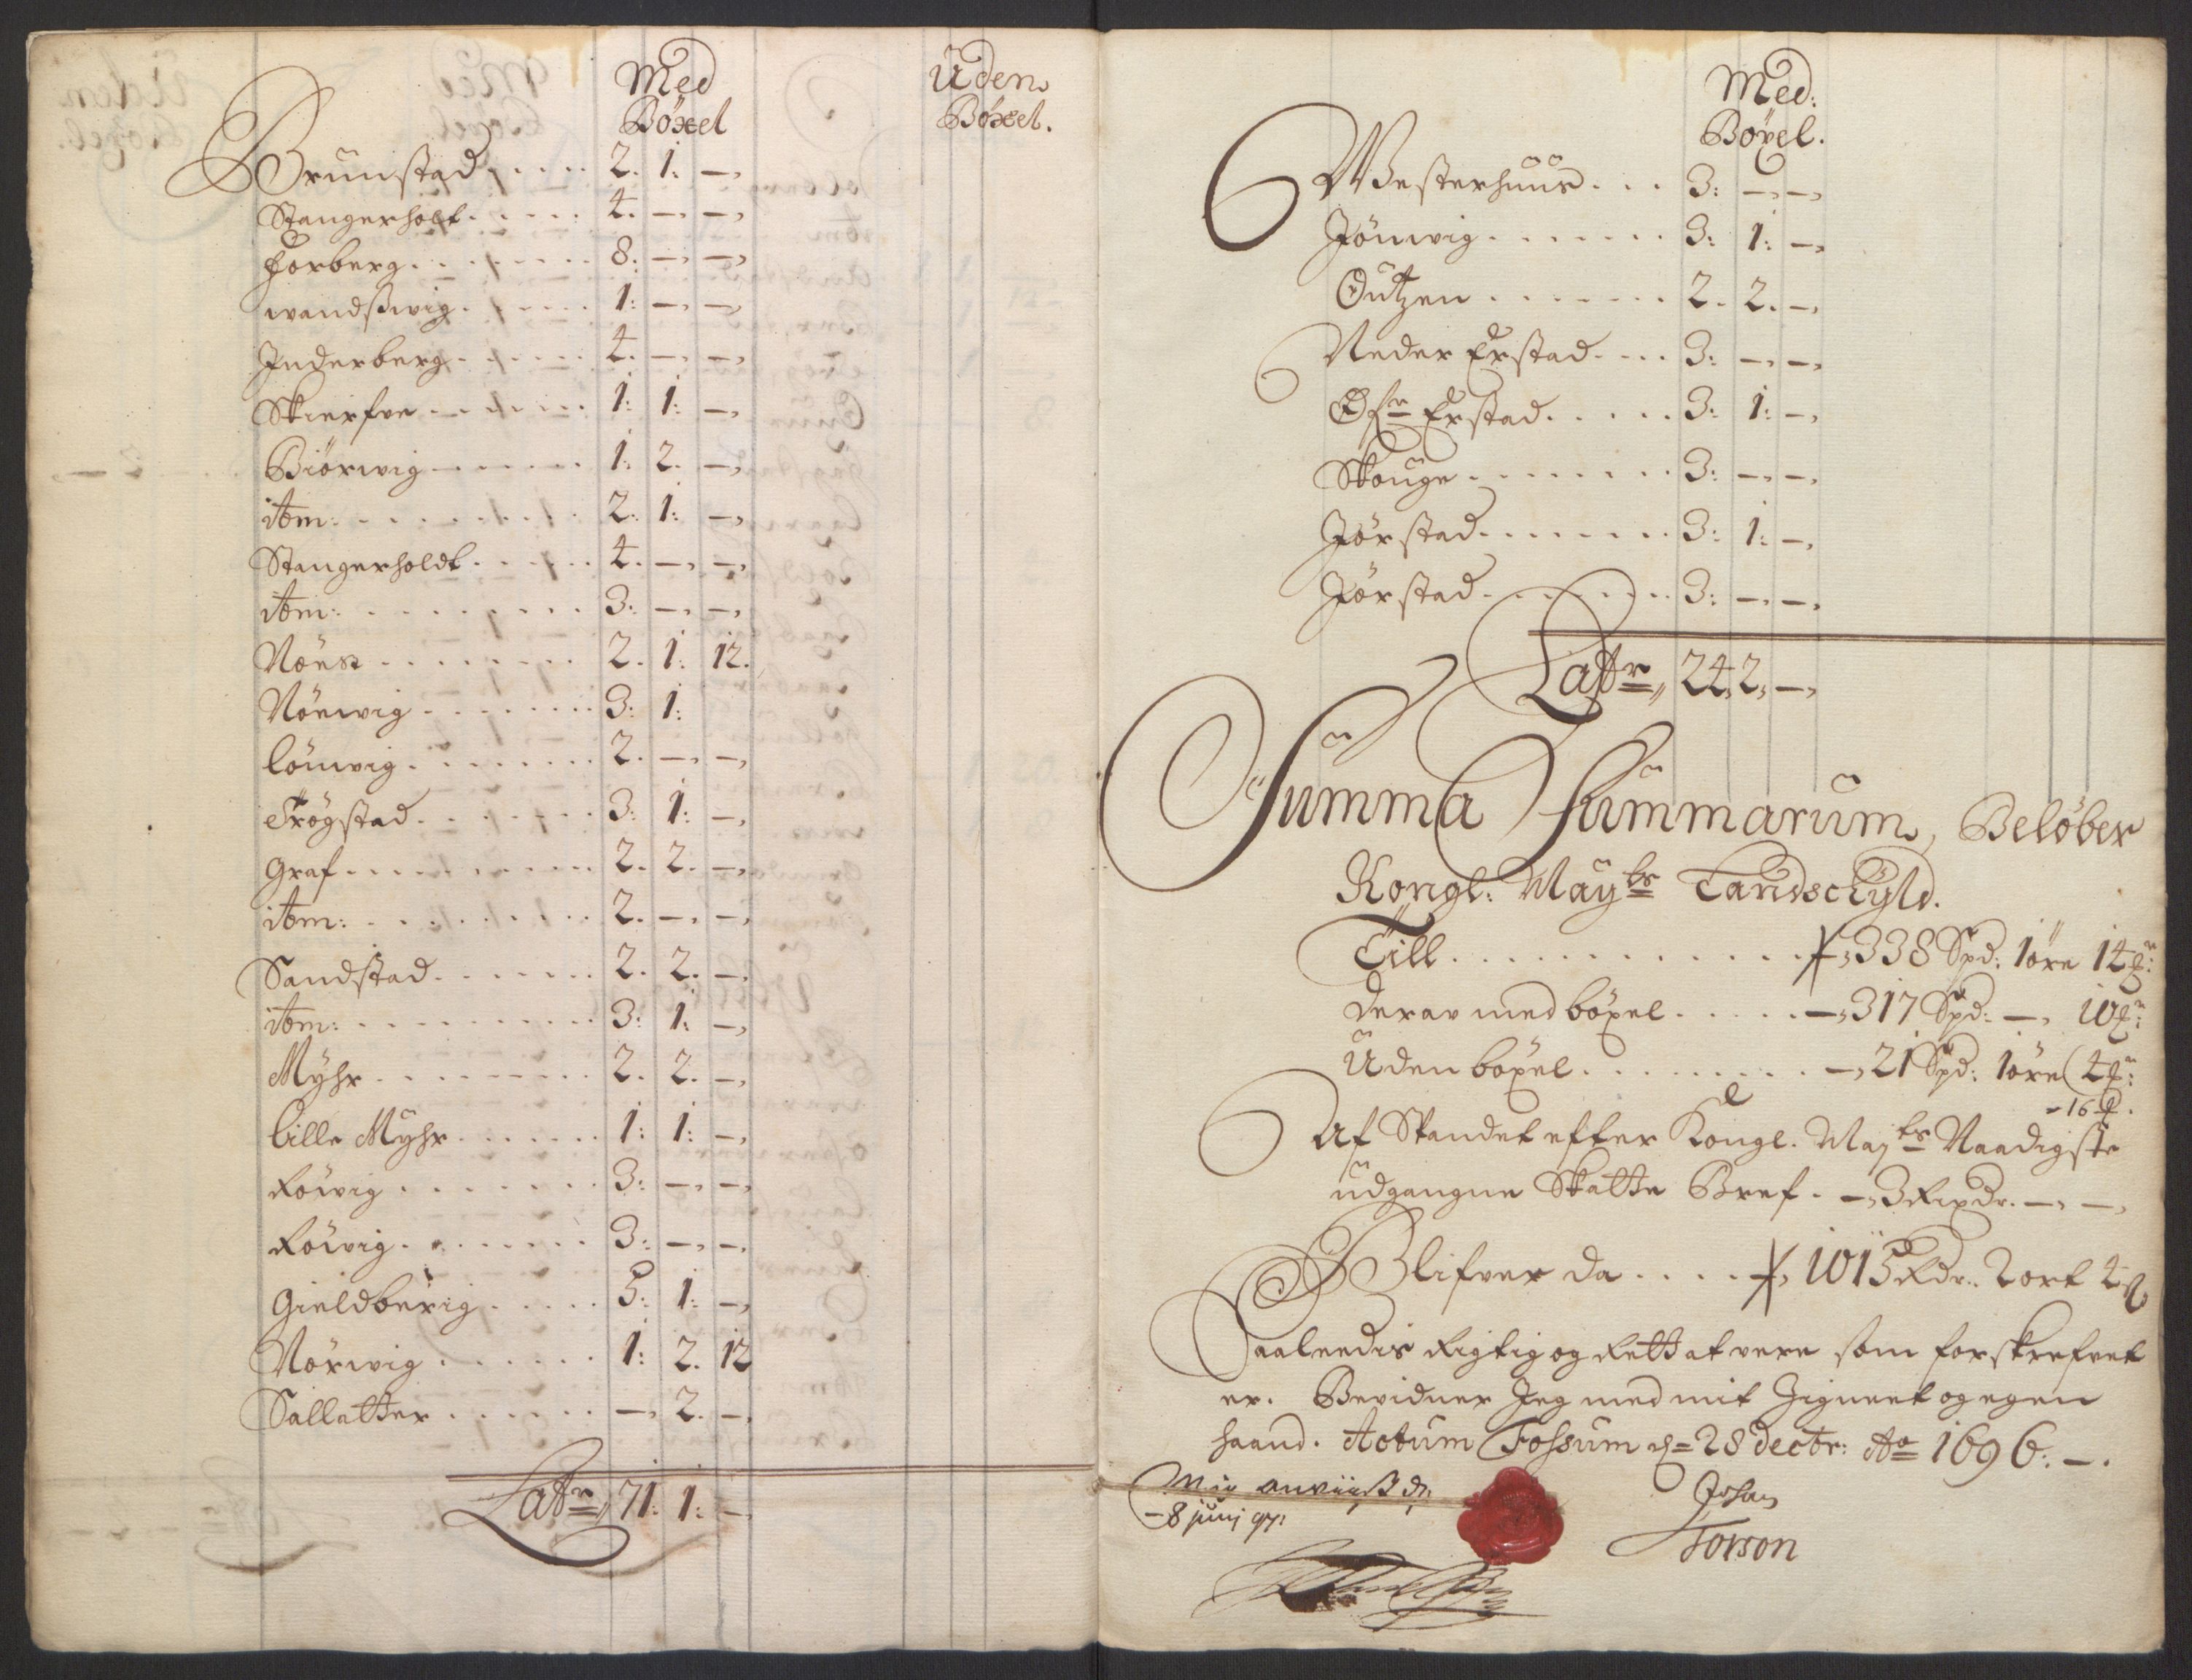 Med
Böxel
Uden
Böxel.
Brunstad ..... 2. 1. —,
Stangerholt ..... 4. —, —,
Forberg ..... 8. —, —,
wandswig ..... 1: —, —,
Inderberg ..... 4. —, —,
Skierfve ..... 1: 1: —,
Biörwig ..... 1. 2. —,
itm: ..... 2. 1: —,
Stangerholdt ..... 4. —, —,
itm: ..... 3. —, —,
Nöest ..... 2. 1: 12.
Nöewig ..... 3: 1:
lönwig ..... 2. —, —,
Trögstad ..... 3: 1: —,
Graf ..... 2. 2. —,
itm: ..... 2. —, —,
Sandstad ..... 2. 2. —,
itm: ..... 3: 1: —,
Myhr ..... 2. 2. —,
lille Myhr ..... 1: 1: —,
Röwig ..... 3: —, —,
Röwig ..... 3: —, —,
Gieldberig ..... 5: 1: —,
Nörwig ..... 1: 2. 12
Sallatter ..... —, 2. —,
Lattr 71: 1: —,
Med:
Böxel.
Westerhuus ... 3: —, —,
Jönwig ..... 3: 1: —,
Outzen ..... 2. 2. —,
Neder Erstad .... 3: —, —,
Öfr Erstad ..... 3: 1: —,
Skouge ..... 3: —, —,
Jörstad ..... 3: 1: —,
Jörstad ..... 3: —, —,
Lattr 24, 2, —,
Summa Summarum, Belöber
Kongl: Mayts Landschyld.
Till ..... 338 Spd: 1 öre 14
derav med böxel ..... —, 317 Spd: —, 10
Uden böxel ..... —, 21 Spd: 1 öre 4
- 16
Af Spandet efter Kongl. Majts Naadigste
udgangne Skatte Bref. —, 3 Rixdr. —, —,
Blifver da .... 1015 Rdr. 2 ort 4
Saaleedis Rigtig og Rett at vere som forskrefvet
er. Bevidner Jeg med mit Zigneet og egen
haand. Actum Fossum d= 28 Decbr: Ao 1696. —.
Mig anviist d.
- 8 junj 97:
Johan
Torson